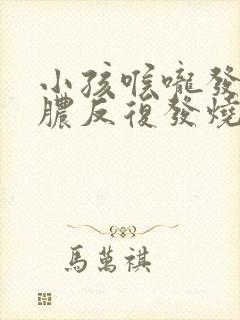 小孩喉嚨發
膿反復發燒
馬萬祺